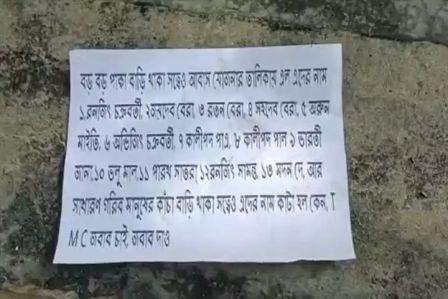 বড় বড় পাকা বাড়ি থাকা সত্বেও আবাস যোজনার তালিকায় এল এদের নাম
১.রনজিৎ চক্রবর্তী, ২জয়দেব বেরা, ৩ রতন বেরা, ৪ সহদেব বেরা, ৫ অরুন
মাইতি, ৬ অভিজিৎ চক্রবর্তী, ৭ কালীপদ পাত্র, ৮ কালীপদ পাল ৯ ভারতী
জানা,১০ তনু মাল,১১ পারথ সাতরা ১২রনজিৎ সামন্ত, ১৩ মদন দে, আর
সাধারণ গরিব মানুষের কাঁচা বাড়ি থাকা সত্বেও এদের নাম কাটা হল কেন, T
M C জবাব চাই, জবাব দাও